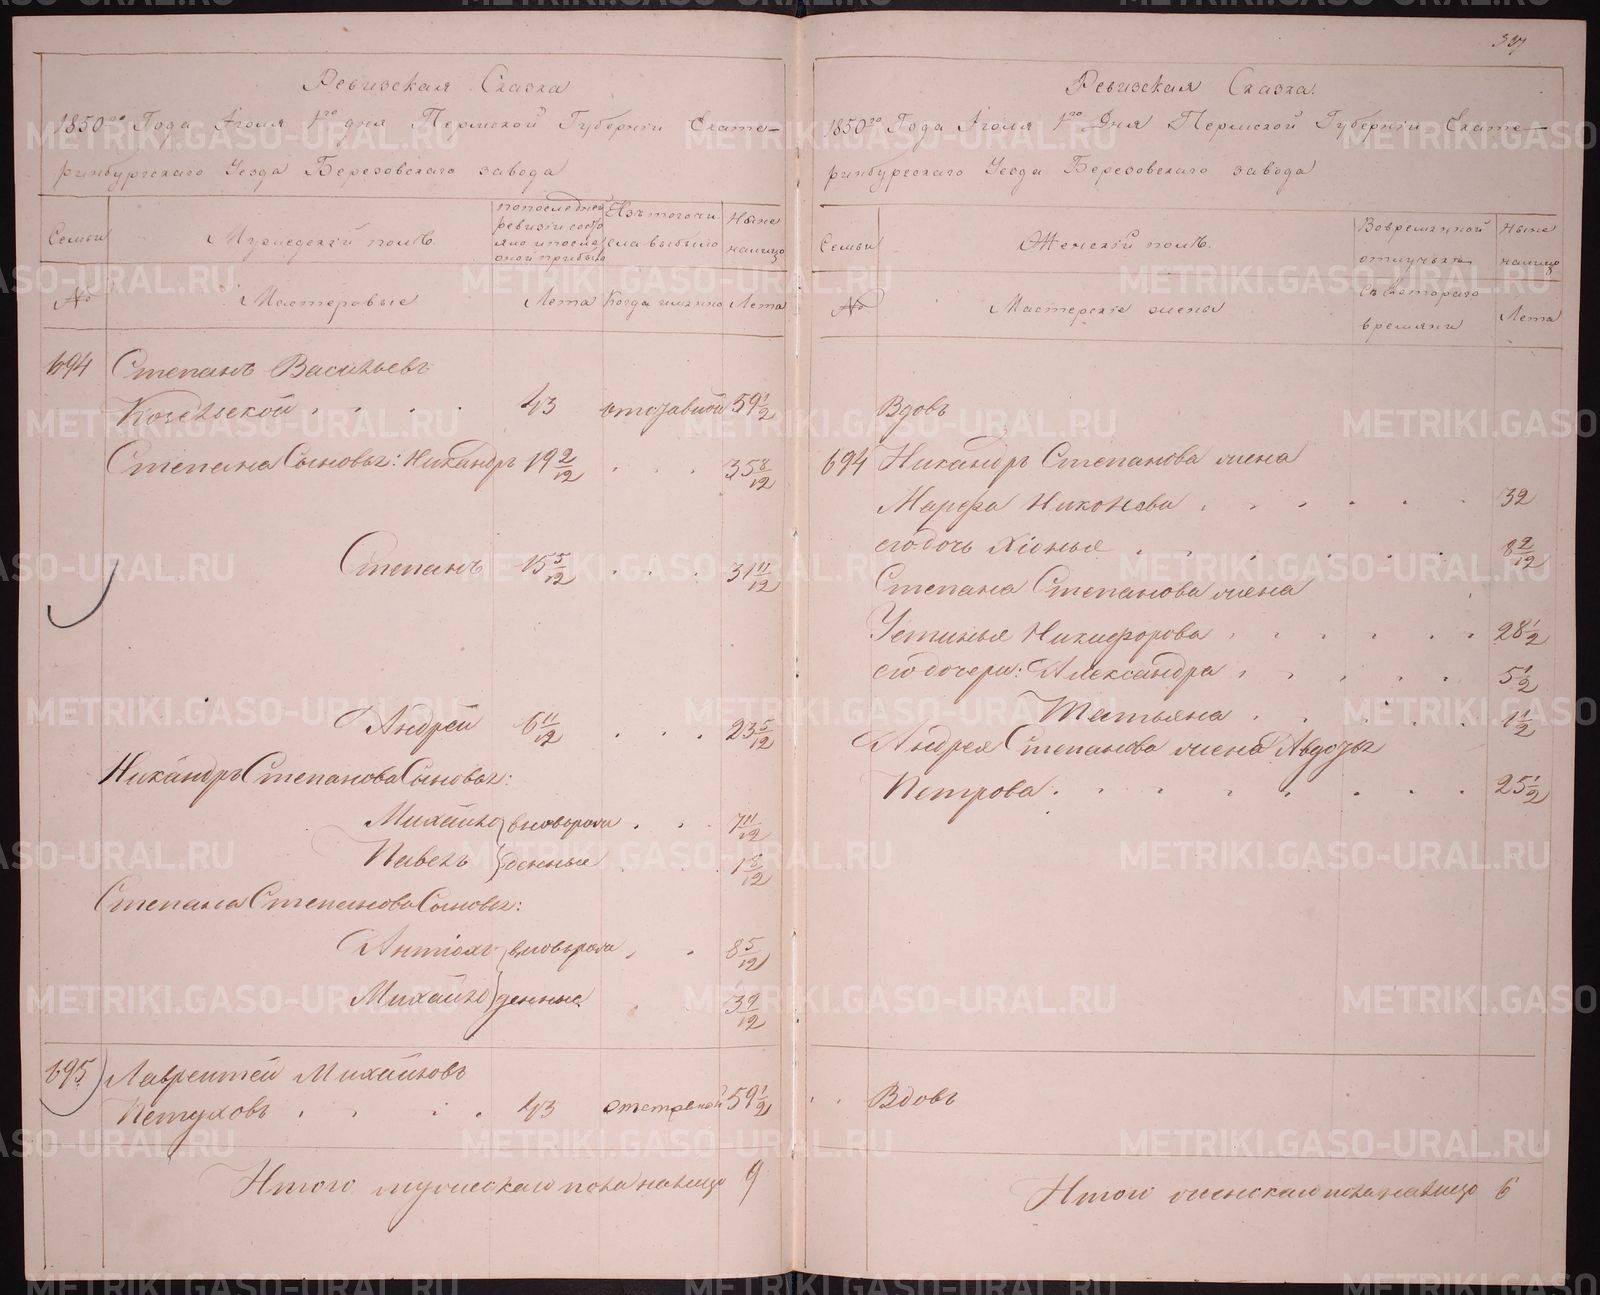 Ревизская Сказка
1850го Года Іюля 1го дня Пермской Губерніи Екате-
ринбургскаго Уезда Березовскаго завода
Семьи
Мужедескій полъ.
попоследней ревизіи состо яло и после оной прибыло
Изъ того чи сла выбыло
Ныне налицо
№
Мастеровые
Лета
Когда имянно
Лета
694 Степанъ Васильевъ
43 отставной 59 1/2
Степана Сыновья: Никандръ 19 2/12 . . . 35 8/12
Степанъ 15 5/12 . . . 31 11/12
Андрей 6 11/12 . . . 23 5/12
Никандръ Степанова Сыновья:
Михайло вновьрож . . 7 11/12
Павелъ денные . . 1 8/12
Степана Степанова Сыновья:
вновьрож . . 8 5/12
Михайло денные . 3 2/12
695 Лаврентей Михайловъ
Петуховъ . . . . 43 отставной 59 1/2
Итого мужескаго пола налицо 9
Ревизская Сказка.
1850го Года Іюля 1го Дня Пермской Губерніи Екате-
ринбургскаго Уезда Березовскаго завода
Семьи
Женскій полъ.
Вовременной отлучьке
Ныне налицо
№
Мастерскіе жены
Съ котораго времяни
Лета
Вдовъ
694 Никандръ Степанова жена
Марфа Никонова . . . . . . 32
его дочь Хіонья . . . . . . 8 2/12
Степана Степанова жена
Устинья Никифорова . . . . . 28 1/2
его дочери: Александра . . . . . 5 1/2
Татьяна . . . . . 1 1/2
Андрея Степанова жена Авдотья
Петрова . . . . . . . . 25 1/2
Вдовъ
Итого женскаго пола налицо 6
METRIKI.GASO-URAL.RU